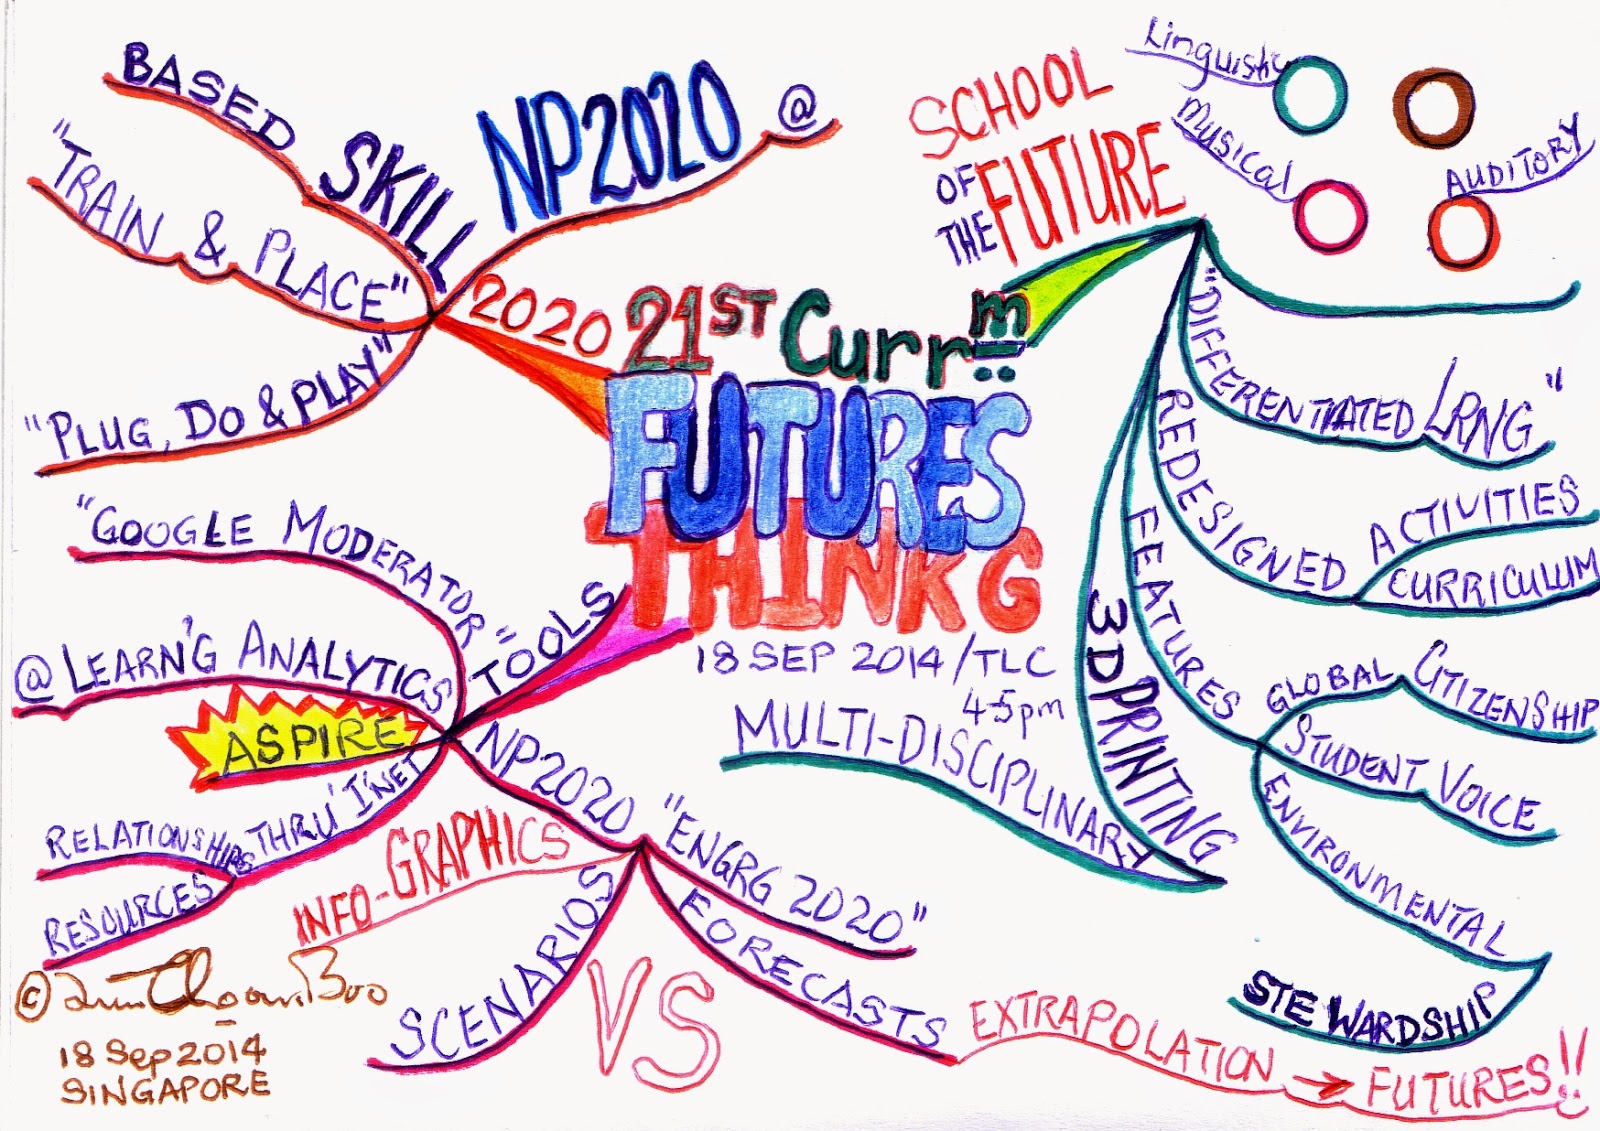 21ST Currm
FUTURES
THINKG
18 SEP 2014/TLC
4-5pm
2020
NP2020 @
SKILL
BASED
"TRAIN & PLACE"
"PLUG, DO & PLAY"
SCHOOL
OF FUTURE
THE
Linguistic
Musical
AUDITORY
"DIFFERENTIATED LRNG"
REDESIGNED
ACTIVITIES
CURRICULUM
FEATURES
GLOBAL CITIZENSHIP
STUDENT VOICE
ENVIRONMENTAL
STEWARDSHIP
3D PRINTING
MULTI-DISCIPLINARY
TOOLS
"GOOGLE MODERATOR"
@ LEARN'G ANALYTICS
ASPIRE
THRU' I'NET
RELATIONSHIPS
RESOURCES
NP2020
"ENGRG 2020"
INFO-GRAPHICS
SCENARIOS
VS
FORECASTS
EXTRAPOLATION → FUTURES!!
©
18 Sep 2014
SINGAPORE